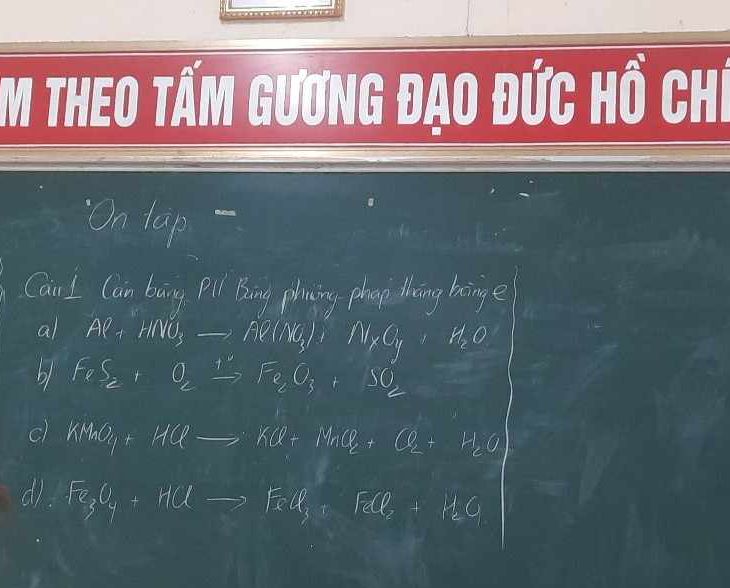 M THEO TẤM GƯƠNG ĐẠO ĐỨC HỒ CHÍ
Ôn tập
Câu 1 Cân bằng PTT Bằng phương pháp thăng bằng e
a) Al + HNO₃ → Al(NO₃)₃ + NₓOᵧ + H₂O
b) FeS₂ + O₂ t° → Fe₂O₃ + SO₂
c) KMnO₄ + HCl → KCl + MnCl₂ + Cl₂ + H₂O
d). Fe₃O₄ + HCl → FeCl₃ + FeCl₂ + H₂O